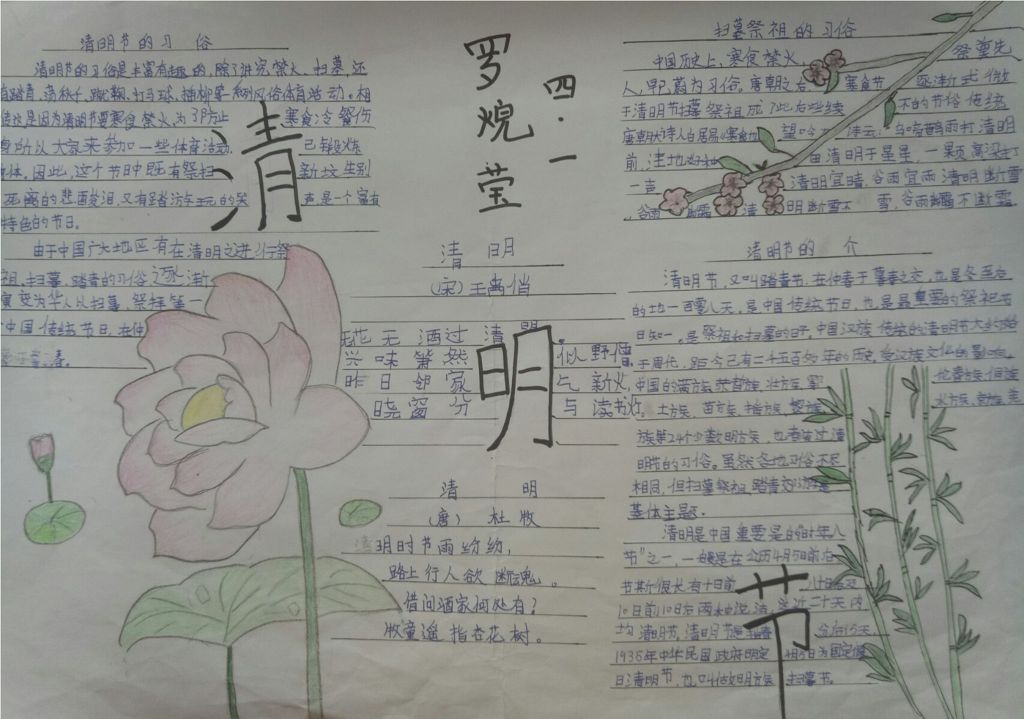 清明节的习俗
清明节的习俗是丰富有趣的,除了讲究禁火、扫墓,还
有踏青、荡秋千、蹴鞠、打马球、插柳等一系列风俗体育活动。相
传这是因为清明节要寒食禁火,为了防止寒食冷餐伤
身,所以大家来参加一些体育活动,已锻炼
身体。因此,这个节日中既有祭扫新坟生别
死离的悲酸泪,又有踏访车玩的笑声,是一个富有
特色的节日。
由于中国广大地区有在清明之进行祭
祖、扫墓、踏青的习俗逐渐
演变为华人以扫墓、祭拜等一
中国传统节日,在仲
清
罗婉莹
四.一
清明
(宋)王禹偁
无花无酒过清明
兴味萧然似野僧
昨日邻家乞新火
晓窗分与读书灯
明
清明
(唐)杜牧
清明时节雨纷纷,
路上行人欲断魂。
借问酒家何处有?
牧童遥指杏花树。
扫墓祭祖的习俗
中国历史上,寒食禁火,祭奠先
人,早已蔚为习俗。唐朝之后,寒食节逐渐式微
于清明节扫墓祭祖成了此后延续不的节俗传统
唐朝大诗人白居易《寒食
望吟
乌啼鹊
前,洼地
由清明于星星,一颗高粱打
一声
清明宜晴,谷雨宜雨 清明断雪
谷雨断霜 清明断雪不雪,谷雨断霜不断霜
清明节的介
清明节,又叫踏青节,在仲春于暮春之交,也是冬至后
的地一百零八天,是中国传统节日,也是最重要的祭祀节
日知一,是祭祖和扫墓的日子,中国汉族传统的清明节大约始
于周代,距今已有二千五百多年的历史,受汉族文化的影响,
中国的满族、赫哲族、壮族、鄂
他青族、侗族
土族、苗族、瑶族、黎族
水族、京族、羌
族等24个少数明方族,也都有过清
明节的习俗。虽然各地习俗不尽
相同,但扫墓祭祖、踏青郊游是
基体主题。
清明是中国重要是的"时年八
节"之一,一般是在公历4月5日前后
节期很长,有十日前八日后及
10日前10日后两种说法,这近二十天内
均清明节,清明节
1935年中华民国政府明定4月5日为国定假
日清明节,也叫做明方族扫墓节。
节